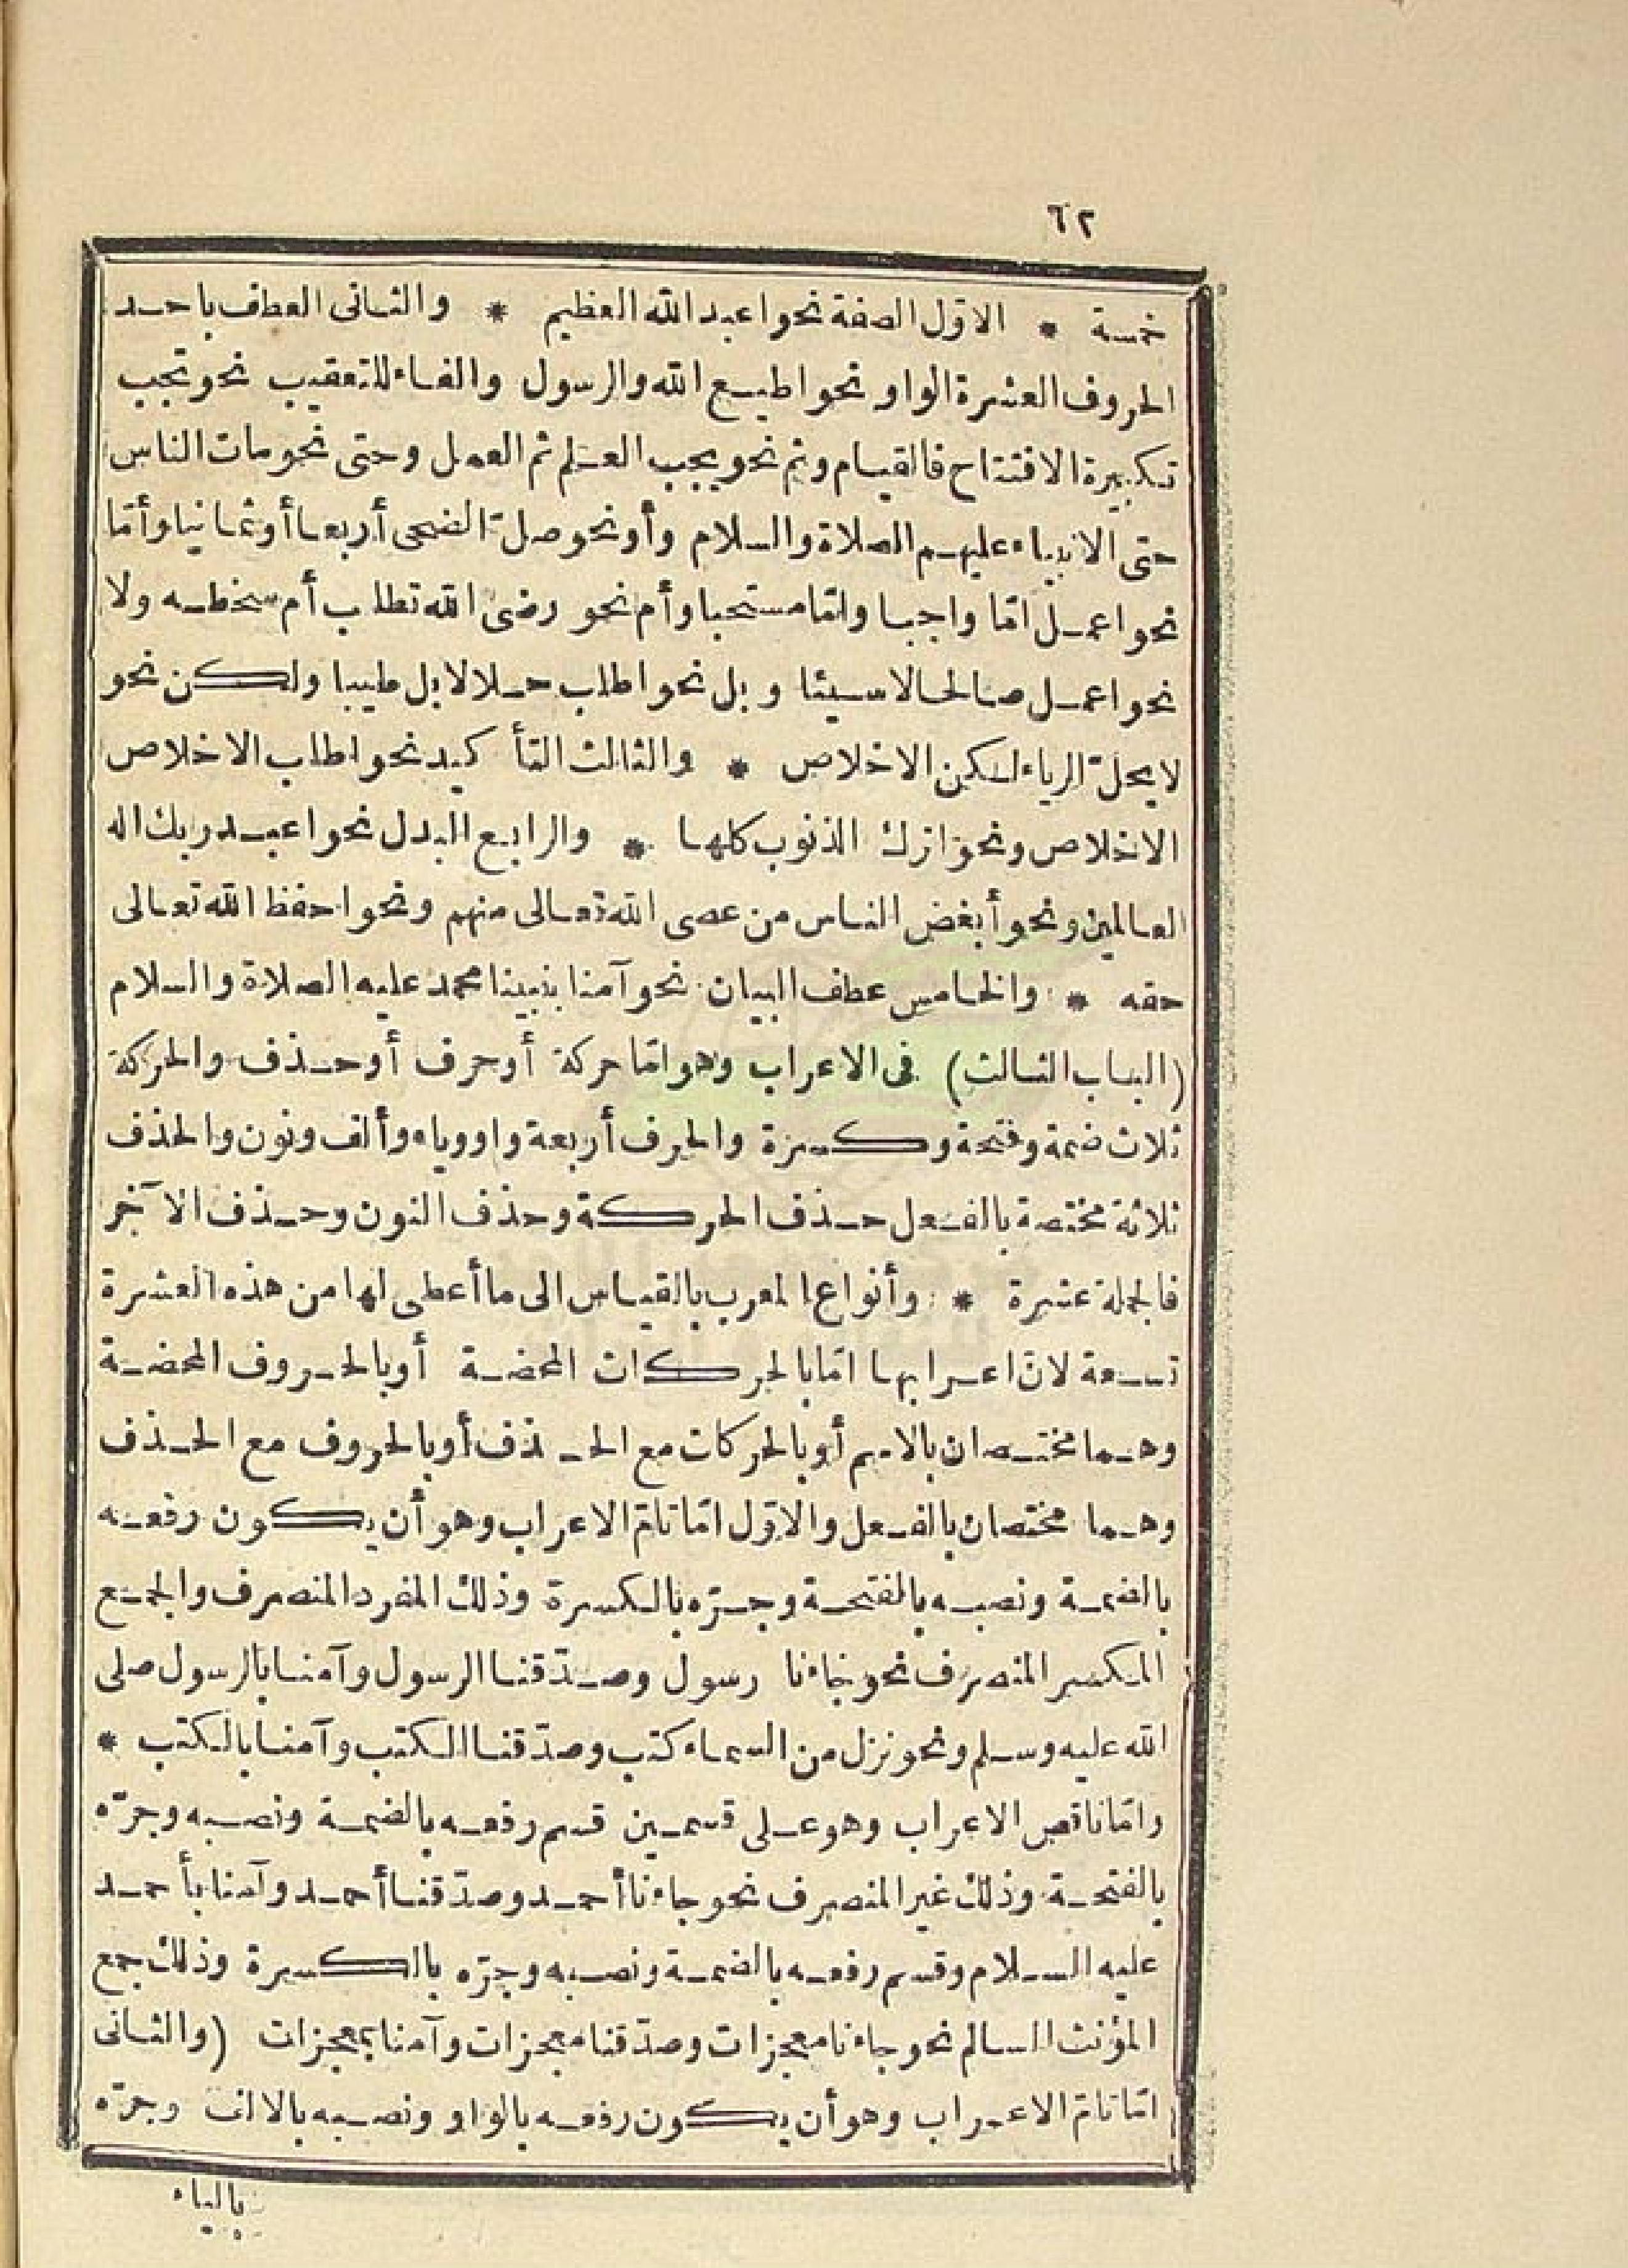 ٦٢
خمسة * الاوّل الصفة نحو اعبد الله العظيم * والثانى العطف باحد
الحروف العشرة الواو نحو اطيع الله والرسول والفاء للتعقيب نحو تجب
تكبيرة الافتتاح فالقيام وثم نحو يجب العلم ثم العمل وحتى نحو مات الناس
حتى الانبياء عليهم الصلاة والسلام وأو نحو صلّ الضحى أربعا أو ثمانيا وأمّا
نحو اعمل امّا واجبا وامّا مستحبا وأم نحو رضى الله تطلب أم سخطه ولا
نحو اعمل صالحا لا سيئا وبل نحو اطلب حلالا بل طيبا ولكن نحو
لا يحلّ الرياء لكن الاخلاص * والثالث التأكيد نحو اطلب الاخلاص
الاخلاص ونحو اترك الذنوب كلها * والرابع البدل نحو اعبد ربك اله
العالمين ونحو أبغض الناس من عصى الله تعالى منهم ونحو احفظ الله تعالى
حقه * والخامس عطف البيان نحو آمنا بنبينا محمد عليه الصلاة والسلام
(الباب الثالث) فى الاعراب وهو امّا حركة أو حرف أو حذف والحركة
ثلاث ضمة وفتحة وكسرة والحرف أربعة واو وياء وألف ونون والحذف
ثلاثة مختصة بالفعل حذف الحركة وحذف النون وحذف الآخر
فالجملة عشرة * وأنواع المعرب بالقياس الى ما أعطى لها من هذه العشرة
تسعة لانّ اعرابها امّا بالحركات المحضة أو بالحروف المحضة
وهما مختصان بالاسم أو بالحركات مع الحذف أو بالحروف مع الحذف
وهما مختصان بالفعل والاوّل امّا تامّ الاعراب وهو أن يكون رفعه
بالضمة ونصبه بالفتحة وجرّه بالكسرة وذلك المفرد المنصرف والجمع
المكسر المنصرف نحو جاءنا رسول وصدّقنا الرسول وآمنا بالرسول صلى
الله عليه وسلم ونحو نزل من السماء كتب وصدّقنا الكتب وآمنا بالكتب *
وامّا ناقص الاعراب وهو على قسمين قسم رفعه بالضمة ونصبه وجرّه
بالفتحة وذلك غير المنصرف نحو جاءنا أحمد وصدّقنا أحمد وآمنا بأحمد
عليه السلام وقسم رفعه بالضمة ونصبه وجرّه بالكسرة وذلك جمع
المؤنث السالم نحو جاءنا معجزات وصدّقنا معجزات وآمنا بمعجزات (والثانى
امّا تامّ الاعراب وهو أن يكون رفعه بالواو ونصبه بالالف وجرّه
بالياء